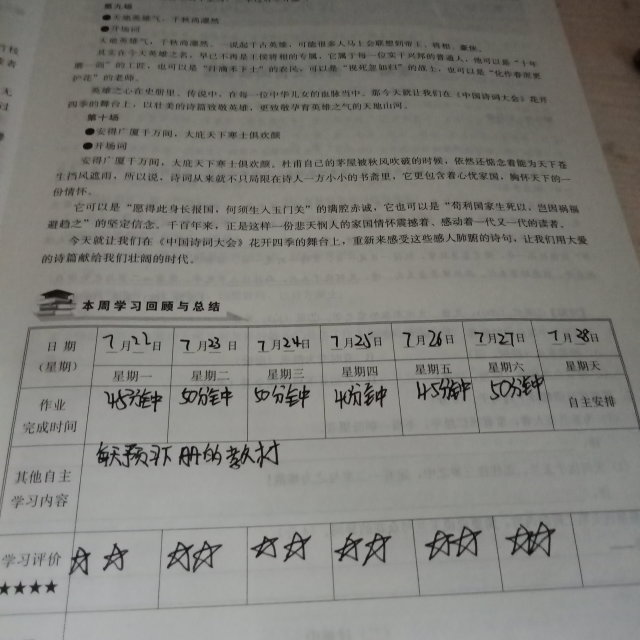 第九场
●天地英雄气，千秋尚凛然
●开场词
天地英雄气，千秋尚凛然。一说起千古英雄，可能很多人马上会联想到帝王、将相、豪侠。
其实在今天英雄之名，早已不再是王侯将相的专属，它属于每一位实干兴邦的普通人，他可以是“十年
磨一剑”的工匠，也可以是“汗滴禾下土”的农民，可以是“视死忽如归”的战士，也可以是“化作春泥更
护花”的老师。
英雄之心在史册里、传说中，在每一位中华儿女的血脉当中。那今天就让我们在《中国诗词大会》花开
四季的舞台上，以壮美的诗篇致敬英雄，更致敬孕育英雄之气的天地山河。
第十场
●安得广厦千万间，大庇天下寒士俱欢颜
●开场词
安得广厦千万间，大庇天下寒士俱欢颜。杜甫自己的茅屋被秋风吹破的时候，依然还惦念着能为天下苍
生挡风遮雨，所以说，诗词从来就不只局限在诗人一方小小的书斋里，它更包含着心忧家国、胸怀天下的一
份情怀。
它可以是“愿得此身长报国，何须生入玉门关”的满腔赤诚，它也可以是“苟利国家生死以，岂因祸福
避趋之”的坚定信念。千百年来，正是这样一份悲天悯人的家国情怀震撼着、感动着一代又一代的读者。
今天就让我们在《中国诗词大会》花开四季的舞台上，重新来感受这些感人肺腑的诗句，让我们用大爱
的诗篇献给我们壮阔的时代。
本周学习回顾与总结
日期 7月22日 7月23日 7月24日 7月25日 7月26日 7月27日 7月28日
（星期） 星期一 星期二 星期三 星期四 星期五 星期六 星期天
作业
完成时间 45分钟 50分钟 50分钟 40分钟 45分钟 50分钟 自主安排
其他自主
学习内容 每天预习下册的教材
学习评价 ☆☆ ☆☆ ☆☆ ☆☆ ☆☆ ☆☆
★★★★